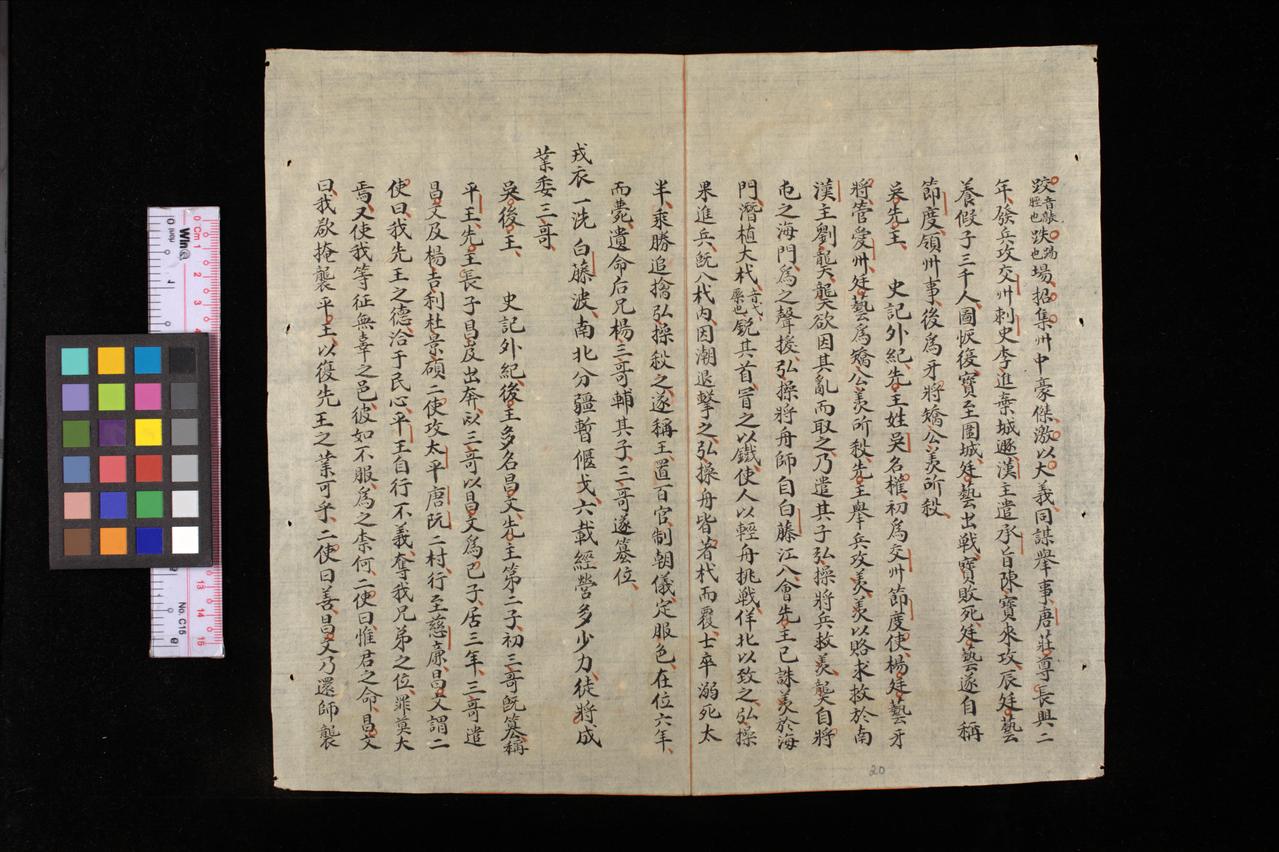 跤音敲脛也跌踼也場招集州中豪傑激以大義同謀舉事唐莊尊長興二
年發兵攻交州刺史李進棄城遯漢主遣承旨陳寶來攻辰廷藝
養假子三千人圖恢復寶至圍城廷藝出戰寶敗死廷藝遂自稱
節度領州事後爲牙將矯公羡所殺
吳先王 史記外紀先王姓吳名權初爲交州節度使楊廷藝牙
將管愛州廷藝爲矯公羡所殺先王舉兵攻羡羡以賂求救於南
漢主劉龑龑欲因其亂而取之乃遣其子弘操將兵救羡龑自將
屯之海門爲之聲援弘操將舟師自白藤江入會先王已誅羡於海
門潛植大杙音弋橜也銳其首冒之以鐵使人以輕舟挑戰佯北以致之弘操
果進兵旣入杙內因潮退擊之弘操舟皆著杙而覆士卒溺死太
半乘勝追擒弘操殺之遂稱王置百官制朝儀定服色在位六年
而薨遺命后兄楊三哥輔其子三哥遂簒位
戎衣一洗白藤波南北分疆暫偃戈六載經營多少力徒將成
業委三哥
吳後王 史記外紀後王多名昌文先主第二子初三哥旣簒稱
平王先主長子昌岌出奔以三哥以昌文爲己子居三年三哥遣
昌文及楊吉利杜景碩二使攻太平唐阮二村行至慈廉昌文謂二
使曰我先王之德洽于民心平王自行不義奪我兄弟之位罪莫大
焉又使我等征無辜之邑彼如不服爲之柰何二使曰惟君之命昌文
曰我欲掩襲平王以復先王之業可乎二使曰善昌文乃還師襲
20